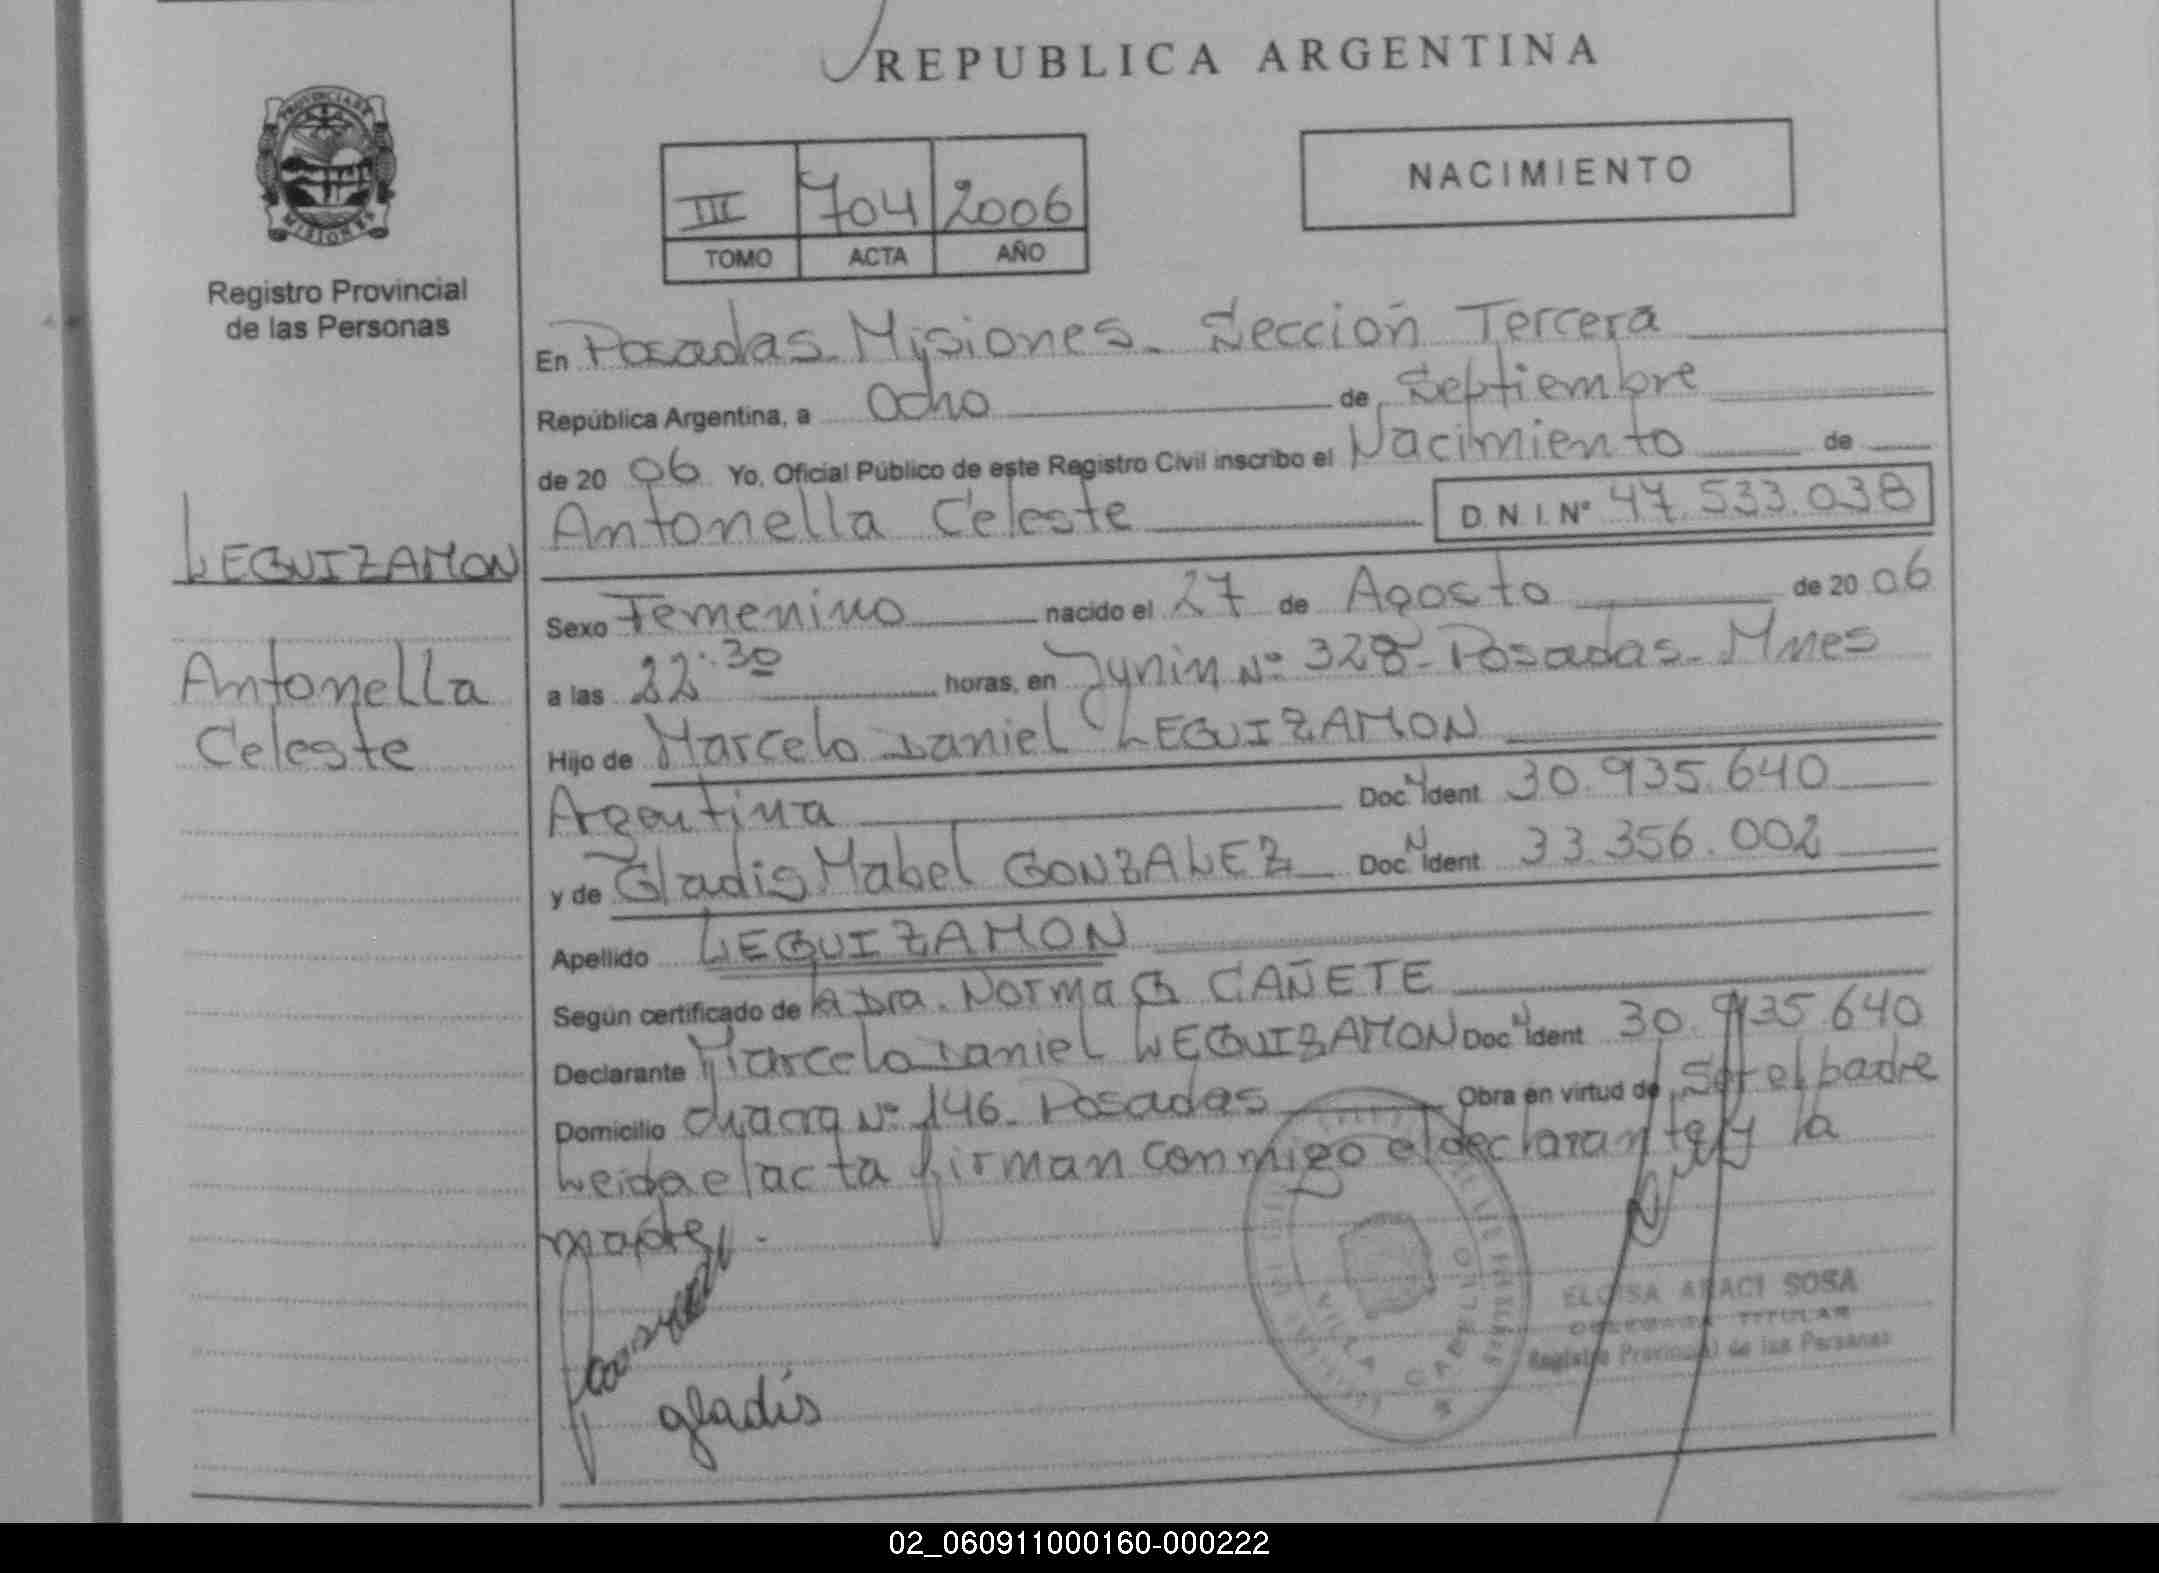 REPUBLICA ARGENTINA
PROVINCIA DE
MISIONES
Registro Provincial
de las Personas
III 704 2006
TOMO ACTA AÑO
NACIMIENTO
LEGUIZAMON
Antonella
Celeste
En Posadas Misiones. Sección Tercera
República Argentina, a Ocho de Septiembre
de 20 06 Yo, Oficial Público de este Registro Civil inscribo el Nacimiento de
Antonella Celeste D.N.I. Nº 47.533.038
Sexo Femenino nacido el 27 de Agosto de 20 06
a las 22:30 horas, en Junin Nº 328 - Posadas - Mnes
Hijo de Marcelo Daniel LEGUIZAMON
Argentina Doc. N Ident 30.935.640
y de Gladis Mabel GONZALEZ Doc. N Ident 33.356.002
Apellido LEGUIZAMON
Según certificado de la Dra. Norma G CAÑETE
Declarante Marcelo Daniel LEGUIZAMON Doc. N Ident 30.935.640
Domicilio chacra Nº 146 - Posadas Obra en virtud de Ser el padre
Leida el acta firman conmigo el declarante y la
madre.-
gladis
VILLA CABELLO
ELOISA ARACI SOSA
TITULAR
Registro Provincial de las Personas
02_060911000160-000222